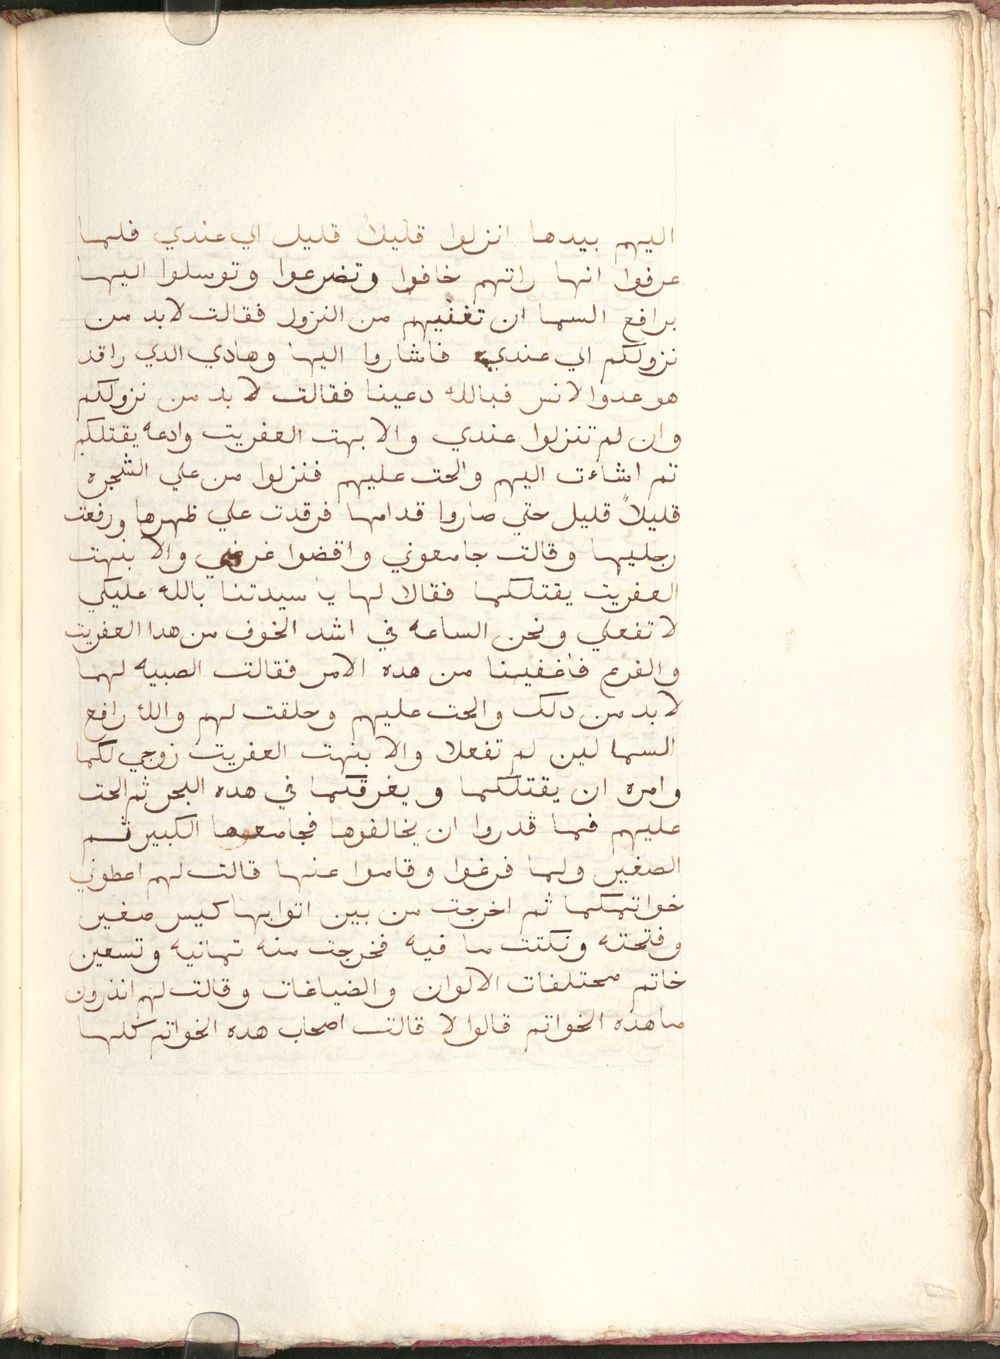 اليهم بيدها انزلوا قليلاً قليل الي عندي فلما
عرفوا انها راتهم خافوا وتضرعوا وتوسلوا اليها
برافع السما ان تغفيهم من النزول فقالت لابد من
نزولكم الي عندي فاشاروا اليها وهادي الدي راقد
هو عدوا لانس فبالله دعينا فقالت لا بد من نزولكم
وان لم تنزلوا عندي والا بهت العفريت وادعه يقتلكم
تم اشاءت اليهم والحت عليهم فنزلوا من علي الشجره
قليلاً قليل حتي صاروا قدامها فرقدت علي ظهرها ورفعت
رجليها وقالت جامعوني واقضوا غرضي والا بنهت
العفريت يقتلكما فقالا لها يا سيدتنا بالله عليكي
لا تفعلي ونحن الساعه في اشد الخوف من هدا العفريت
والفزع فاغفينا من هده الامر فقالت الصبيه لهما
لابد من دلك والحت عليهم وحلقت لهم والله رافع
السما لين لم تفعلا والا بنهت العفريت زوجي لكما
وامره ان يقتلكما ويغرقكما في هده البحر ثم الحت
عليهم فما قدروا ان يخالفوها فجامعوها الكبير ثم
الصغير ولما فرغوا وقاموا عنها قالت لهم اعطوني
خواتمكما ثم اخرجت من بين اتوابها كيس صغير
وفتحته ونكتت ما فيه فخرجت منه تمانيه وتسعين
خاتم محتلفات الالوان والضياغات وقالت لهم اتدرون
ما هده الخواتم قالوا لا قالت اصحاب هده الخواتم كلها